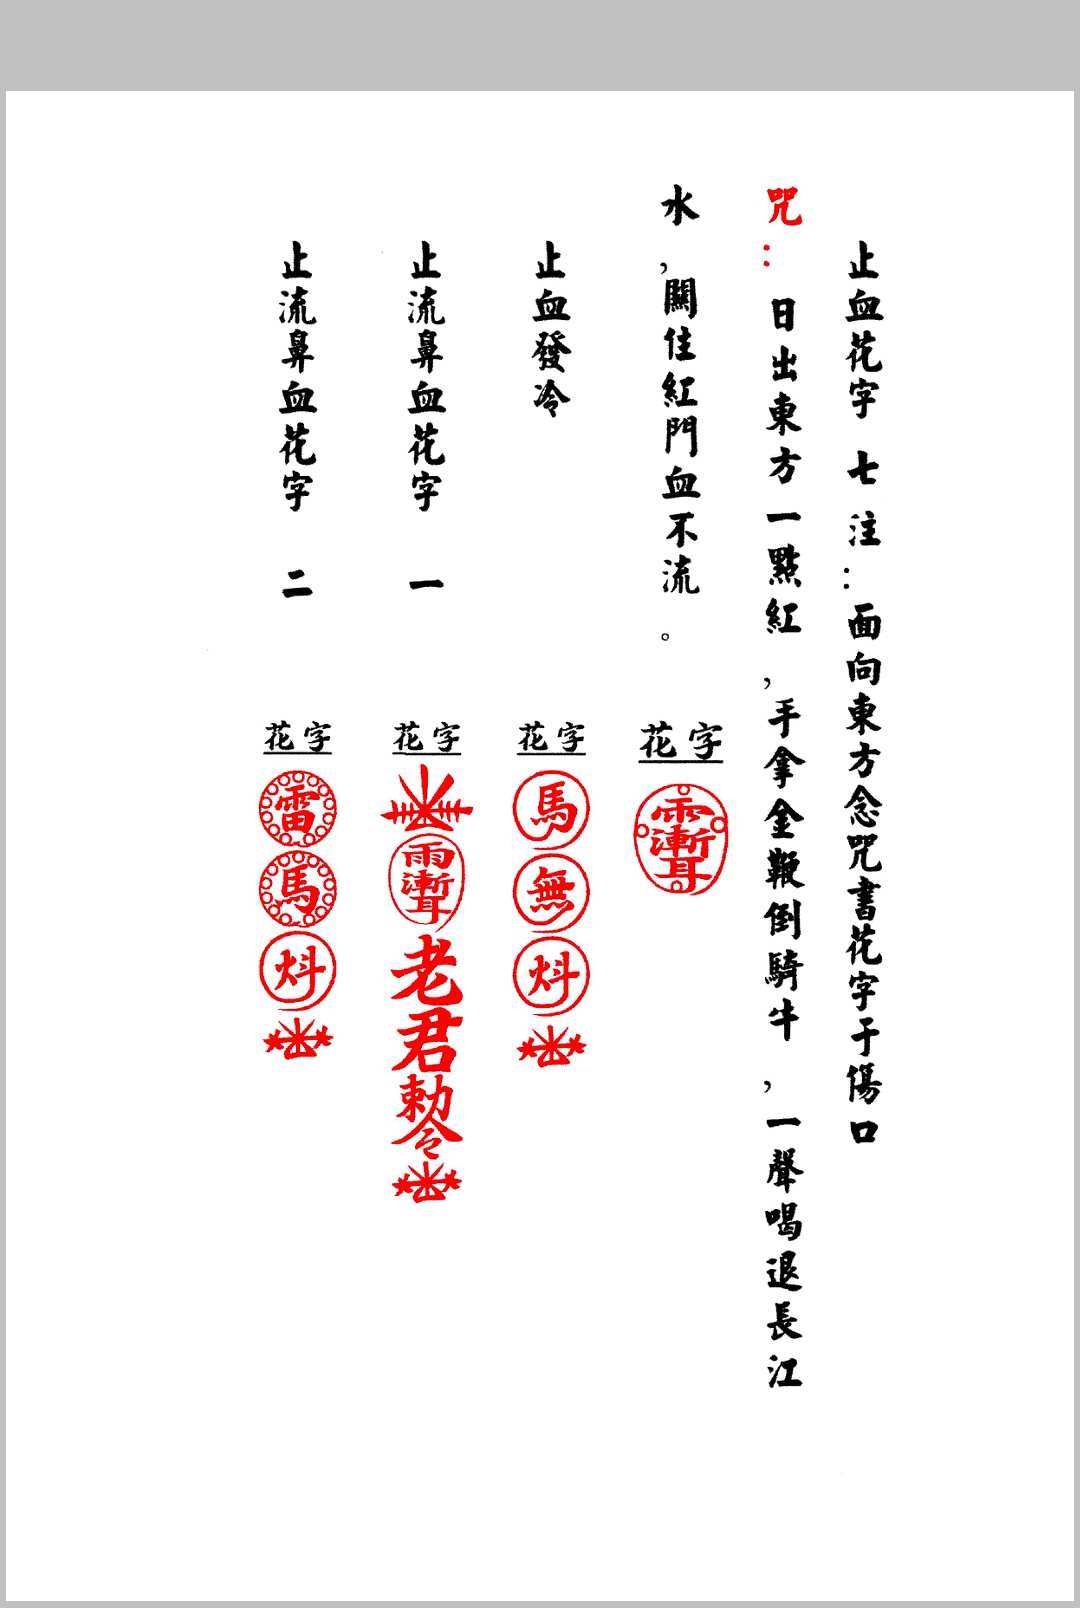 止血花字 七 注：面向東方念咒書花字于傷口
咒：日出東方一點紅，手拿金鞭倒騎牛，一聲喝退長江
水，關住紅門血不流。
花字
止血發冷
花字
馬
無
炓
止流鼻血花字 一
花字
雨漸耳
老君勅令
止流鼻血花字 二
花字
雷
馬
炓